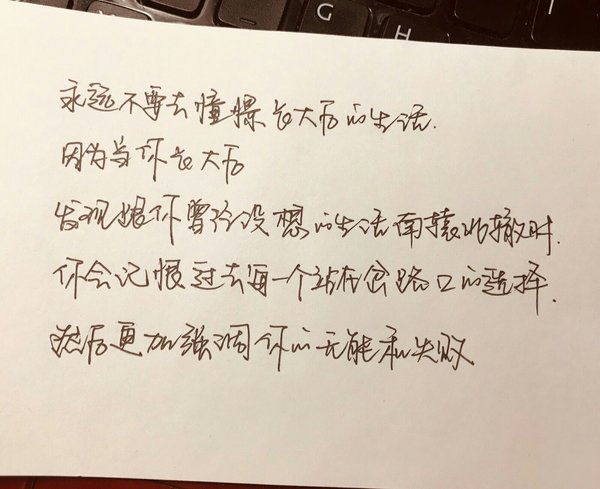 永远不要去憧憬长大后的生活.
因为当你长大后
发现跟你曾经设想的生活南辕北辙时.
你会记恨过去每一个站在岔路口的选择.
然后更加强调你的无能和失败
G
H